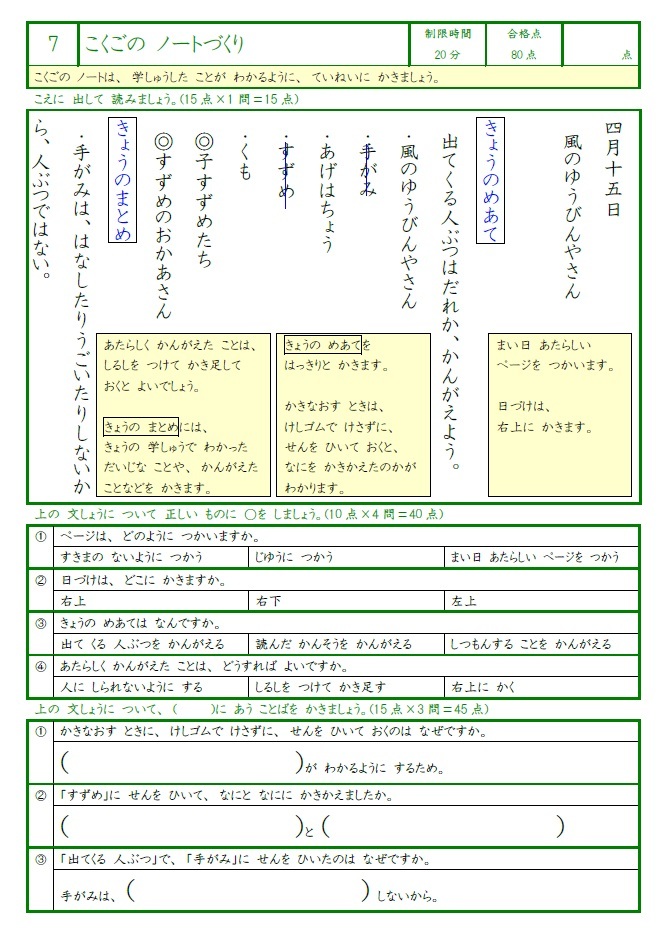 7
こくごの ノートづくり
制限時間
20分
合格点
80点
点
こくごの ノートは、 学しゅうした ことが わかるように、 ていねいに かきましょう。
こえに 出して 読みましょう。(15点×1問=15点)
四月十五日
風のゆうびんやさん
きょうのめあて
出てくる人ぶつはだれか、かんがえよう。
・風のゆうびんやさん
・手がみ
・あげはちょう
・すずめ
・くも
◎子すずめたち
◎すずめのおかあさん
きょうのまとめ
・手がみは、はなしたりうごいたりしないか
ら、人ぶつではない。
まい日 あたらしい
ページを つかいます。
日づけは、
右上に かきます。
きょうの めあてを
はっきりと かきます。
かきなおす ときは、
けしゴムで けさずに、
せんを ひいて おくと、
なにを かきかえたのかが
わかります。
あたらしく かんがえた ことは、
しるしを つけて かき足して
おくと よいでしょう。
きょうの まとめには、
きょうの 学しゅうで わかった
だいじな ことや、 かんがえた
ことなどを かきます。
上の 文しょうに ついて 正しい ものに ○を しましょう。(10点×4問=40点)
① ページは、 どのように つかいますか。
すきまの ないように つかう
じゆうに つかう
まい日 あたらしい ページを つかう
② 日づけは、 どこに かきますか。
右上
右下
左上
③ きょうの めあては なんですか。
出て くる 人ぶつを かんがえる
読んだ かんそうを かんがえる
しつもんする ことを かんがえる
④ あたらしく かんがえた ことは、 どうすれば よいですか。
人に しられないように する
しるしを つけて かき足す
右上に かく
上の 文しょうに ついて、 ( )に あう ことばを かきましょう。(15点×3問=45点)
① かきなおす ときに、 けしゴムで けさずに、 せんを ひいて おくのは なぜですか。
( )が わかるように するため。
② 「すずめ」に せんを ひいて、 なにと なにに かきかえましたか。
( )と ( )
③ 「出てくる 人ぶつ」で、 「手がみ」に せんを ひいたのは なぜですか。
手がみは、 ( ) しないから。